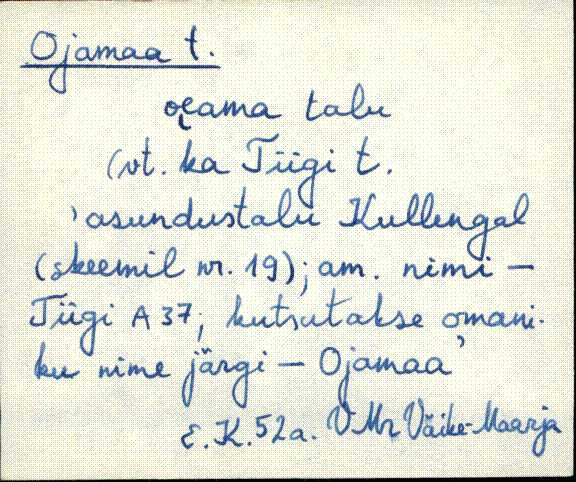 Ojamaa t.
oęama talu
(vt. ka Tiigi t.
'asundustalu Kullengal
(skeemil nr. 19); am. nimi –
Tiigi A 37; kutsutakse omani-
ku nime järgi – Ojamaa'
E.K. 52a. VMr Väike-Maarja